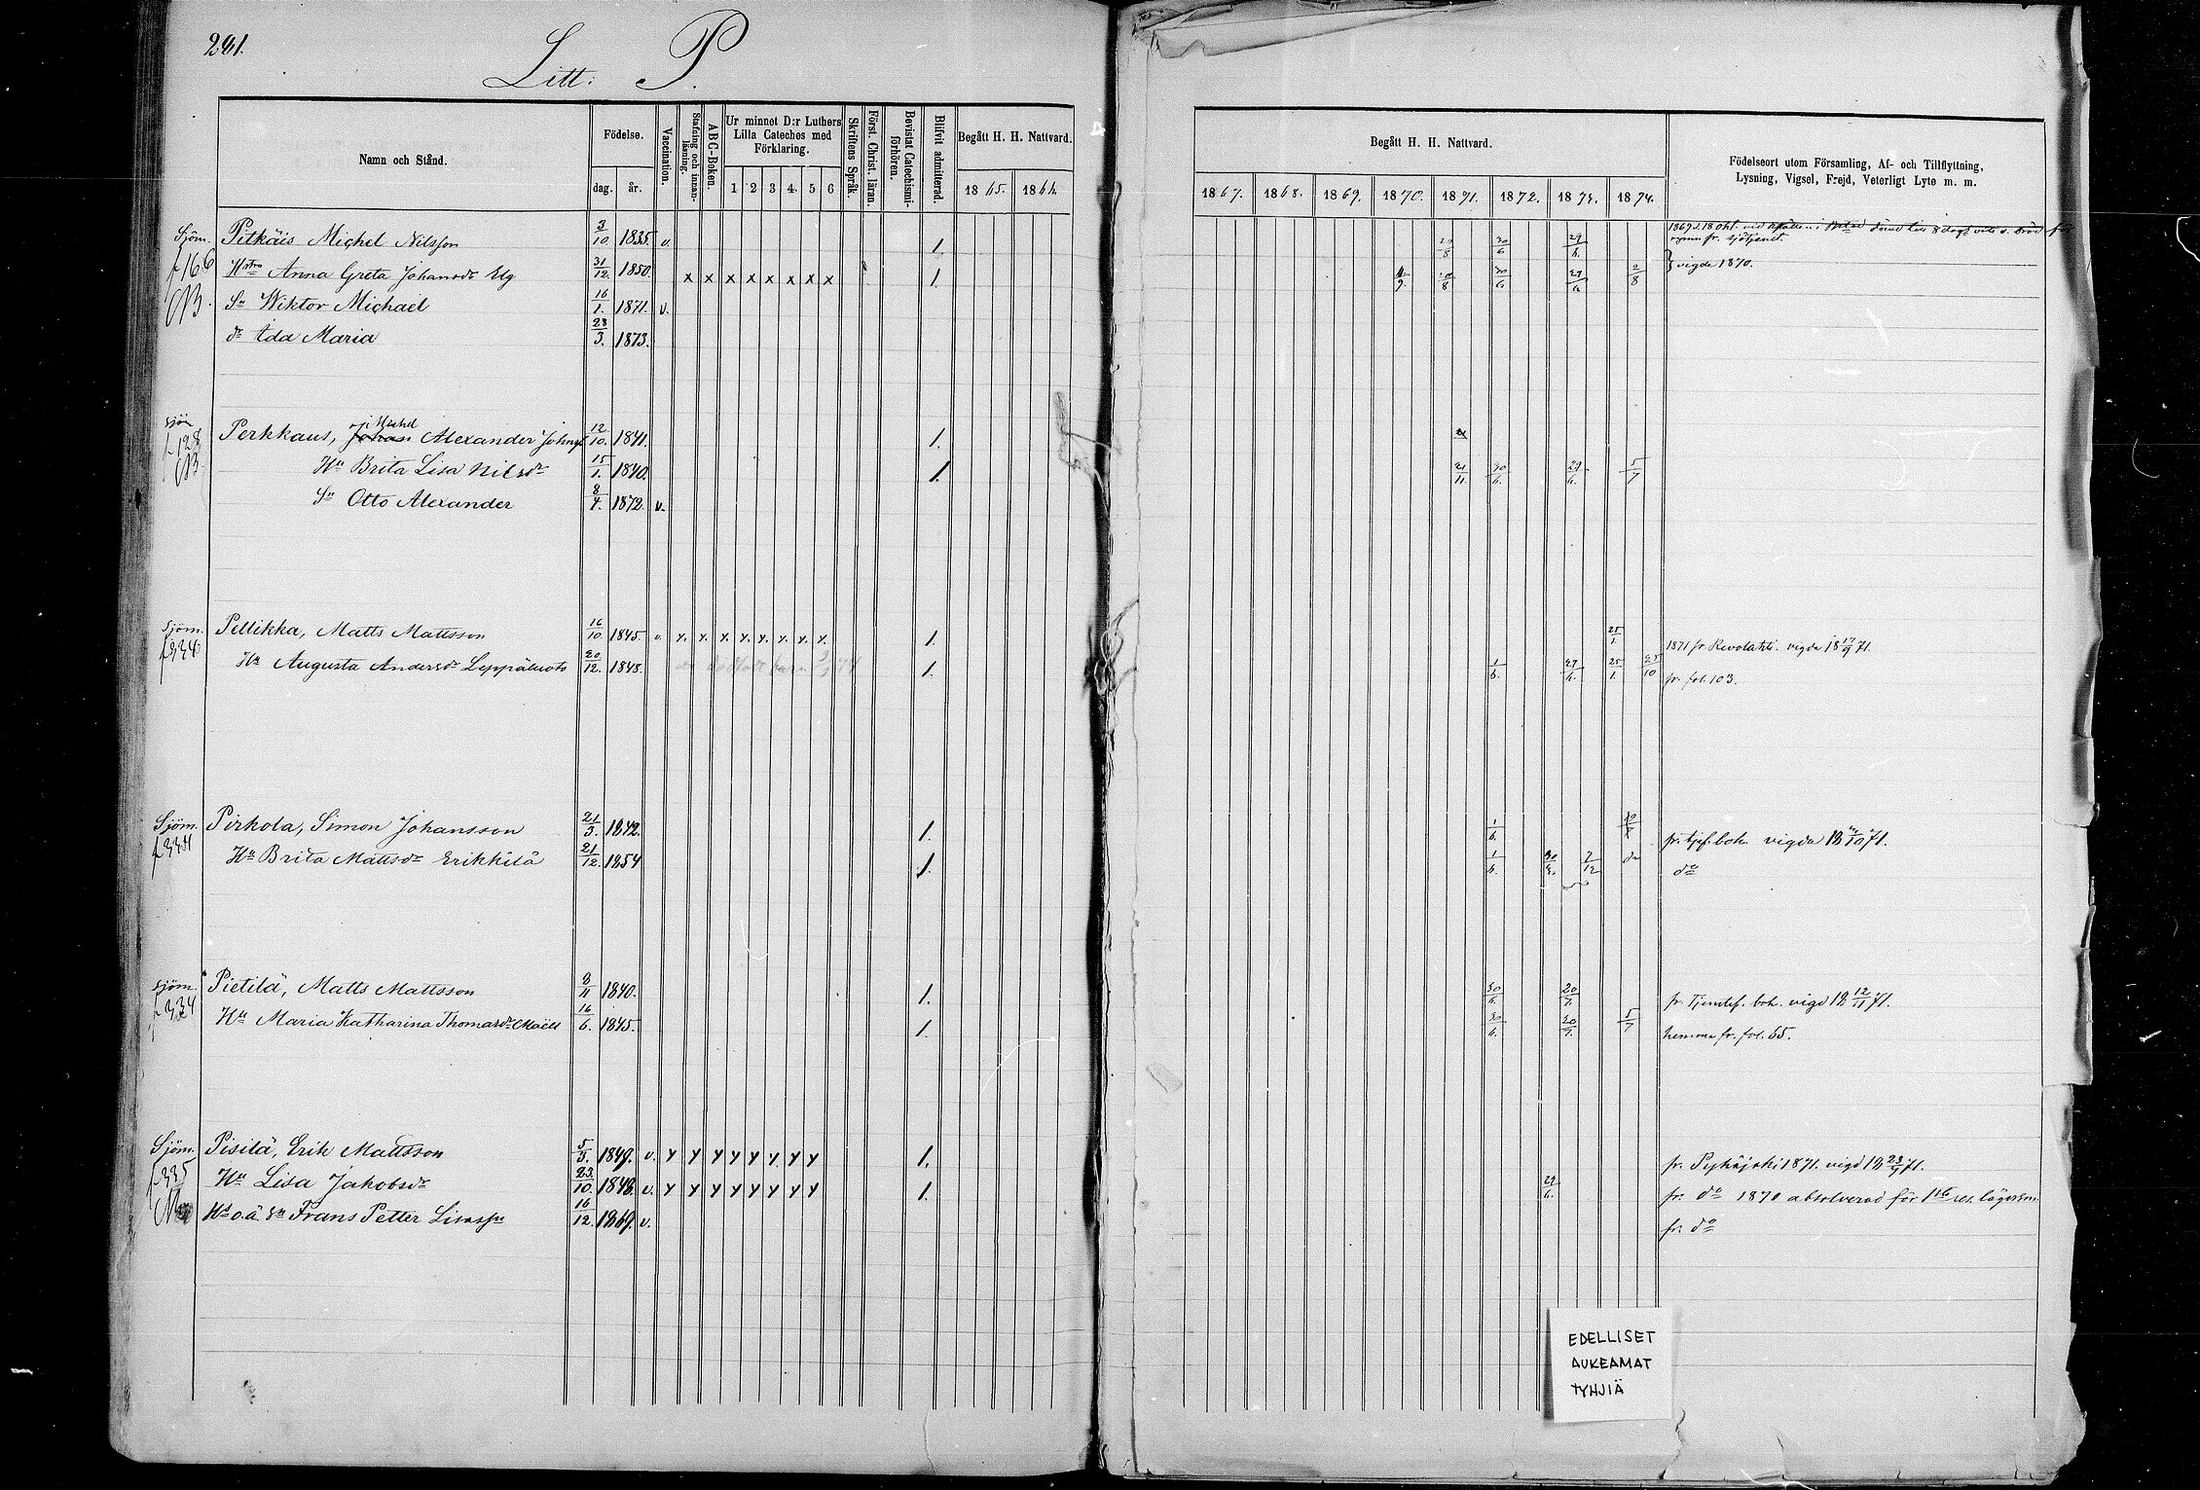 281.
Litt. P.
Namn och Stånd.
Födelse.
dag. år.
Vaccination.
Stafning och innanläsning.
ABC-Boken.
Ur minnet D:r Luthers Lilla Cateches med Förklaring.
1 2 3 4 5 6
Skriftens Språk.
Först. Christ. läran.
Bevistat Catechismiförhören.
Blifvit admitterad.
Begått H. H. Nattvard.
1865. 1866
Begått H. H. Nattvard.
1867. 1868. 1869. 1870. 1871. 1872. 1873. 1874.
Födelseort utom Församling, Af- och Tillflyttning,
Lysning, Vigsel, Frejd, Veterligt Lyte m. m.
Sjöm. Pitkäis Michel Nilsson 3/10. 1835. v. 1. 30/6 29/6.
f 166 Hstru Anna Greta Johansdr Elg 31/12. 1850. x x x x x x x x 1. 30/6 29/6 2/8 vigde 1870.
Sn Wiktor Michael 16/1. 1871. v.
dr Ida Maria 28/3. 1873.
Sjöm Perkkaus, Johan Michel Alexander Johnss 12/10. 1841. 1.
f 128 Hu Brita Lisa Nilsdr 15/1. 1840. 1. 21/11. 30/6. 29/6. 5/7
Sn Otto Alexander 8/4. 1872. v.
Sjöm. Pellikka, Matts Mattsson 16/10. 1845. v. x. x. x x x. x. x. x. 1. 25/1. 1871 fr. Revolaks. vigda 18 17/9 71.
f 334 Hu Augusta Andersdr Leppäluoto 20/12. 1845. 1. 1/6. 29/6. 25/1. 25/10 fr. fol. 103.
Sjöm. Pirkola, Simon Johansson 21/3. 1842. 1. 1/6. vigda 18 71.
f 334 Hu Brita Mattsdr Erikkilä 21/12. 1854 1. 1/6. 2/12 do
Sjöm. Pietilä, Matts Mattsson 9/11 1840. 1. 30/6. 20/7. fr. Tjenstef. bok. vigd 18 12/11 71.
f. 334 Hu Maria Katharina Thomasdr 16/6. 1845. 1. 30/6. 20/7. 5/7 hemma fr. fol. 55.
Sjöm. Pisilä, Erik Mattsson 5/3. 1849. v. x x x x x x x x 1. fr. Pyhäjoki 1871. vigd 18 23/9 71.
f 335 Hu Lisa Jakobsdr 23/10. 1848. v. x x x x x x x x 1. 29/6. fr. do 1870 absolverad för 1sta res. lägersm.
Hs o. ä. sn Frans Petter 16/12. 1869. v. fr. do
EDELLISET
AUKEAMAT
TYHJIÄ